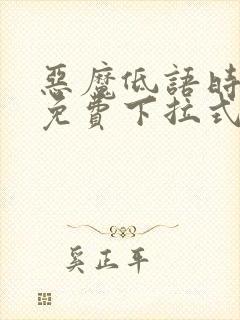 惡魔低語時
免費下拉式
奚正平